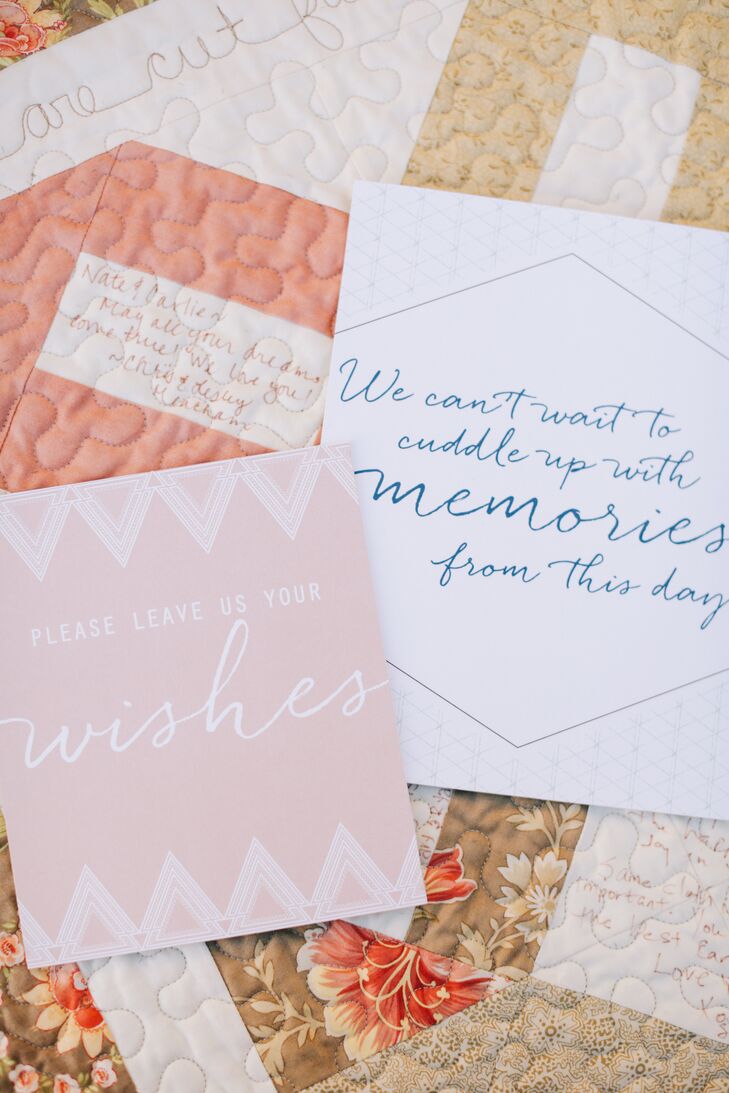 are cut
Nate & Carlie~
May all your dreams
come true! We love you!
~Chris & Lesley
We can't wait to
cuddle up with
memories
from this day
PLEASE LEAVE US YOUR
wishes
joy in
Same cloth
important
the best
Love